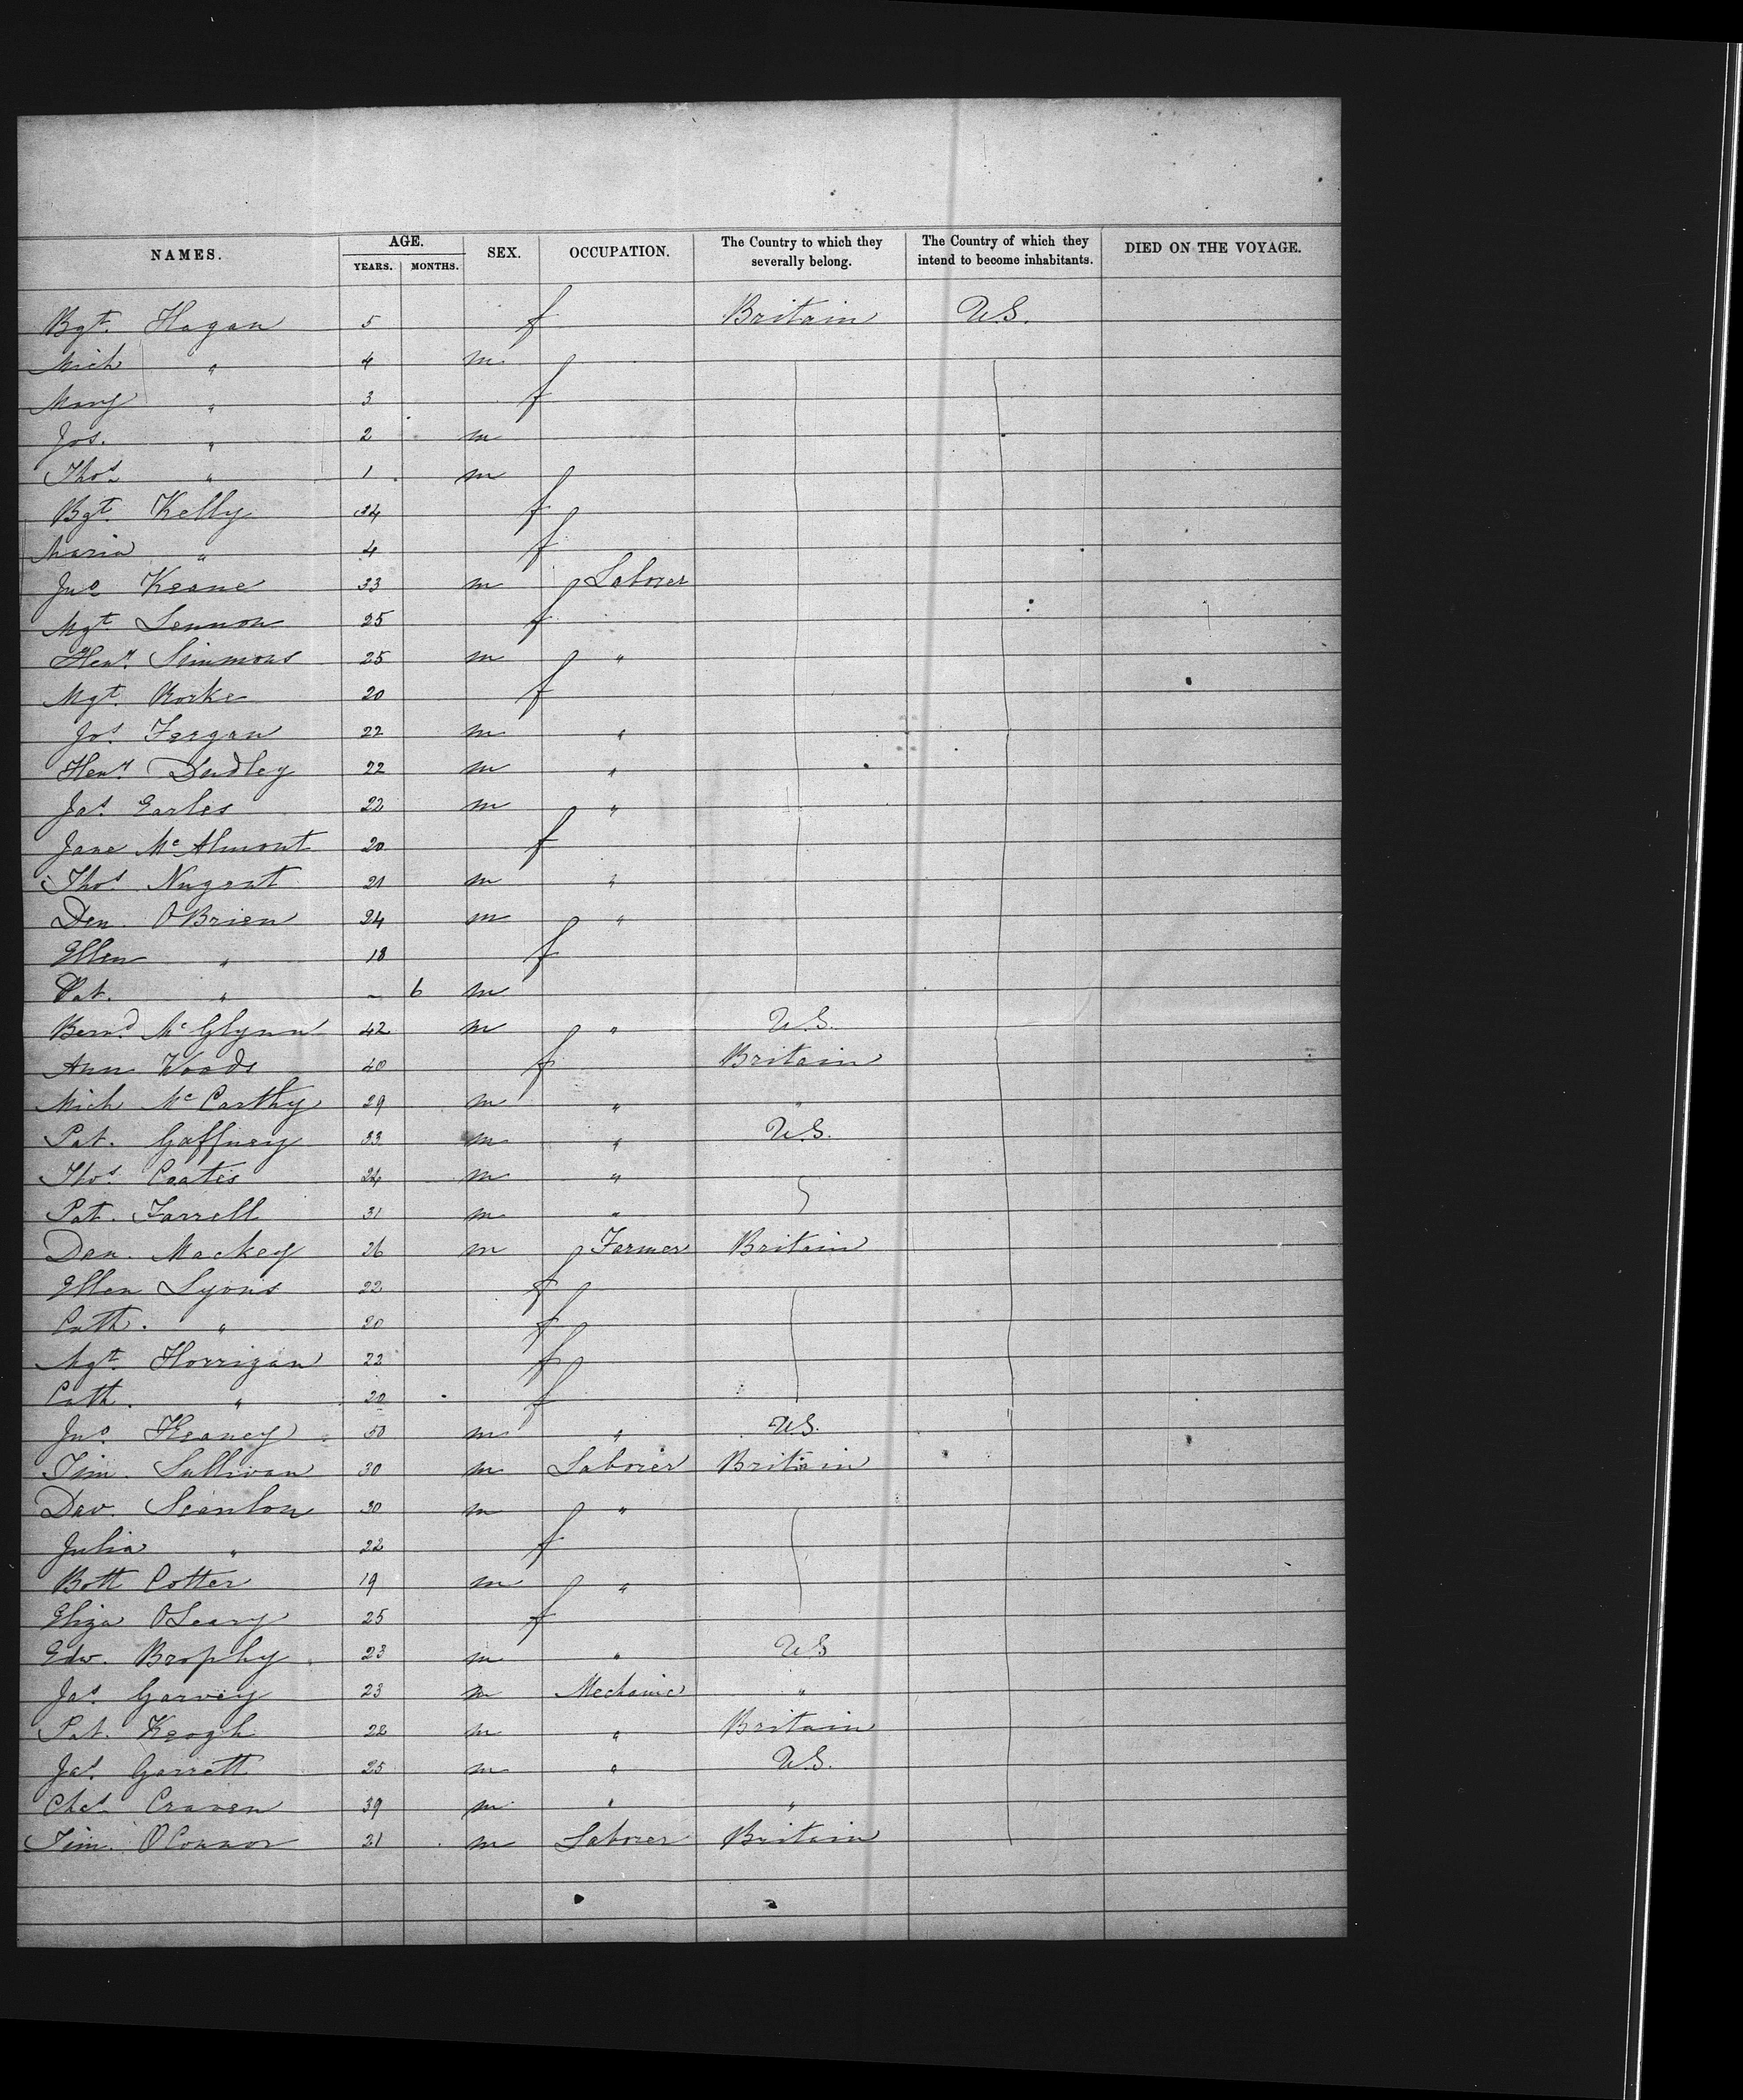 NAMES. AGE. YEARS. MONTHS. SEX. OCCUPATION. The Country to which they severally belong. The Country of which they intend to become inhabitants. DIED ON THE VOYAGE.
Bgt. Hagan 5 f Britain U.S.
Mich " 4 m
Mary " 3 f
Jos. " 2 m
Thos " 1 m
Bgt. Kelly 24 f
Maria " 4 f
Jno Keane 33 m Laborer
Mgt Lennon 25 f
Heny. Simmons 25 m "
Mgt. Rorke 20 f
Jos. Fergan 22 m "
Heny. Dudley 22 m "
Jas. Earles 22 m "
Jane McAlmont 20 f
Thos. Nugent 21 m "
Den. OBrien 24 m "
Ellen " 18 f
Pat. " - 6 m
Bernd. McGlynn 42 m " U.S.
Ann Woods 40 f Britain
Mich McCarthy 29 m " "
Pat. Gaffney 33 m " U.S.
Thos. Coates 24 m "
Pat. Farrell 31 m "
Dan. Mackey 26 m Farmer Britain
Ellen Lyons 22 f
Cath. " 20 f
Mgt. Horrigan 22 f
Cath. " 20 f
Jno. Heaney 50 m " U.S.
Tim. Sullivan 30 m Laborer Britain
Dav. Scanlon 30 m "
Julia " 22 f
Bott Cotter 19 m "
Eliza OLeary 25 f
Edw. Brophy 23 m " U.S
Jas. Garvey 23 m Mechanic "
Pat. Keogh 22 m " Britain
Jas. Garrett 25 m " U.S.
Chas. Craven 39 m " "
Tim. OConnor 21 m Laborer Britain